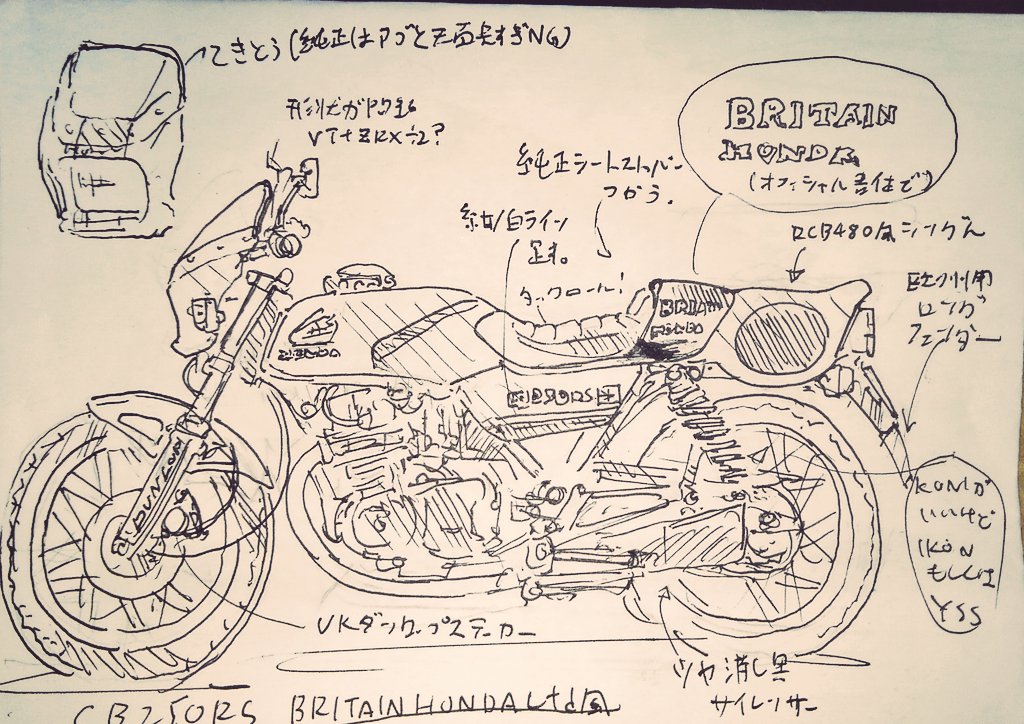 てきとう(純正はアゴと天面長すぎNG)
形状が
VT+ZRX÷2?
純正シートストッパー
つかう。
BRITAIN
HONDA
(オフィシャル書体で)
紺/白ライン
足す。
タックロール!
RCB480風シングル
欧州用
ロング
フェンダー
BRITAIN
HONDA
HONDA
DUNLOP
KONIが
いいけど
IKON
もしくは
YSS
UKダンロップステッカー
ツヤ消し黒
サイレンサー
CB250RS BRITAIN HONDA Ltd